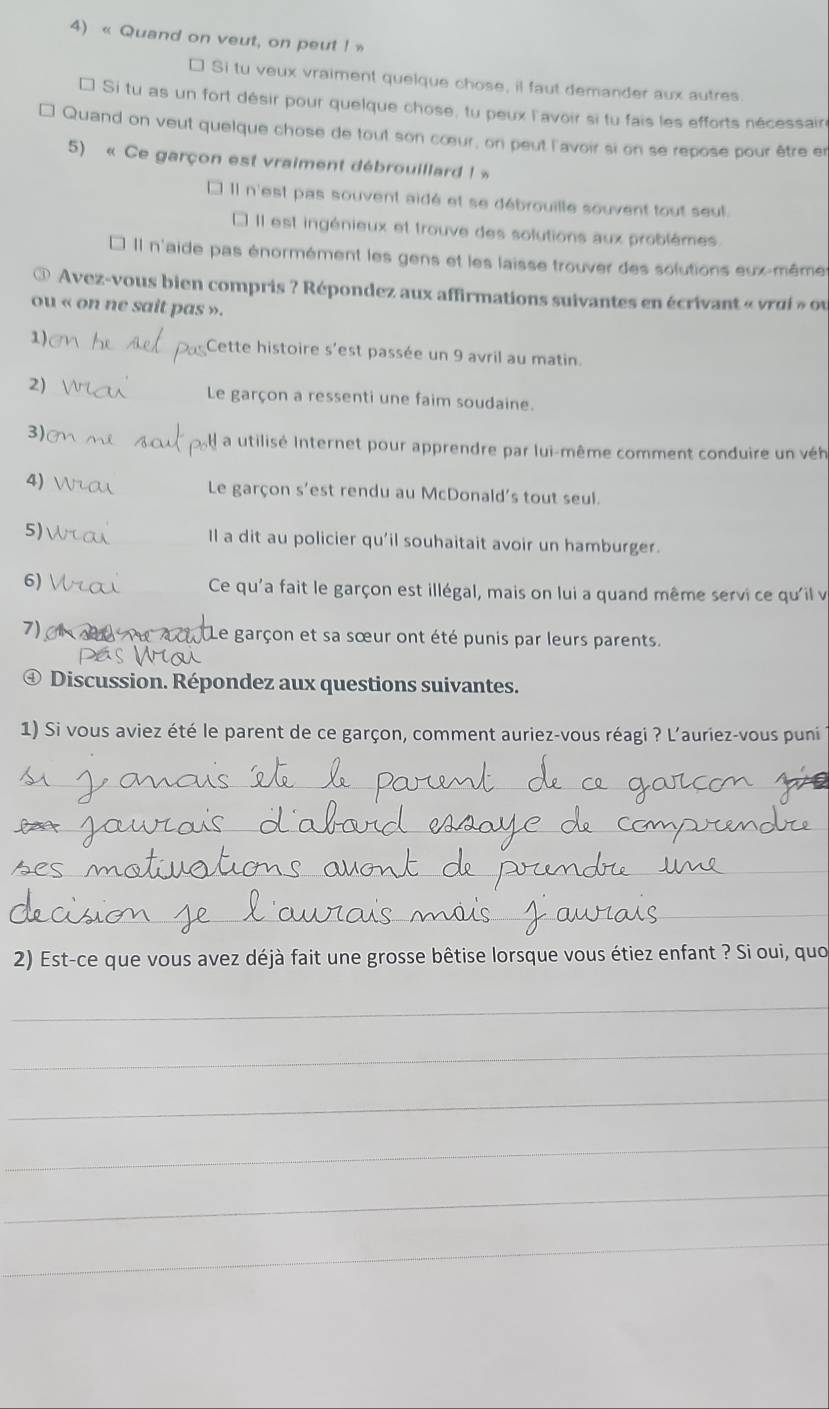 4) « Quand on veut, on peut ! »
☐ Si tu veux vraiment quelque chose, il faut demander aux autres.
☐ Si tu as un fort désir pour quelque chose, tu peux l'avoir si tu fais les efforts nécessaire
☐ Quand on veut quelque chose de tout son cœur, on peut l'avoir si on se repose pour être en
5) « Ce garçon est vraiment débrouillard ! »
☐ Il n'est pas souvent aidé et se débrouille souvent tout seul.
☐ Il est ingénieux et trouve des solutions aux problèmes.
☐ Il n'aide pas énormément les gens et les laisse trouver des solutions eux-même
③ Avez-vous bien compris ? Répondez aux affirmations suivantes en écrivant « vrai » ou
ou « on ne sait pas ».
1) on ne pas Cette histoire s'est passée un 9 avril au matin.
2) Vrai Le garçon a ressenti une faim soudaine.
3) on ne sait pas Il a utilisé Internet pour apprendre par lui-même comment conduire un véh
4) Vrai Le garçon s'est rendu au McDonald's tout seul.
5) Vrai Il a dit au policier qu'il souhaitait avoir un hamburger.
6) Vrai Ce qu'a fait le garçon est illégal, mais on lui a quand même servi ce qu'il v
7) Le garçon et sa sœur ont été punis par leurs parents.
pas Vrai
④ Discussion. Répondez aux questions suivantes.
1) Si vous aviez été le parent de ce garçon, comment auriez-vous réagi ? L'auriez-vous puni ?
si j'amais éte le parent de ce garcon
jaurais d'abard essaye de comprendre
ses motivations avont de prendre une
decision je l'aurais mais j'aurais
2) Est-ce que vous avez déjà fait une grosse bêtise lorsque vous étiez enfant ? Si oui, quo